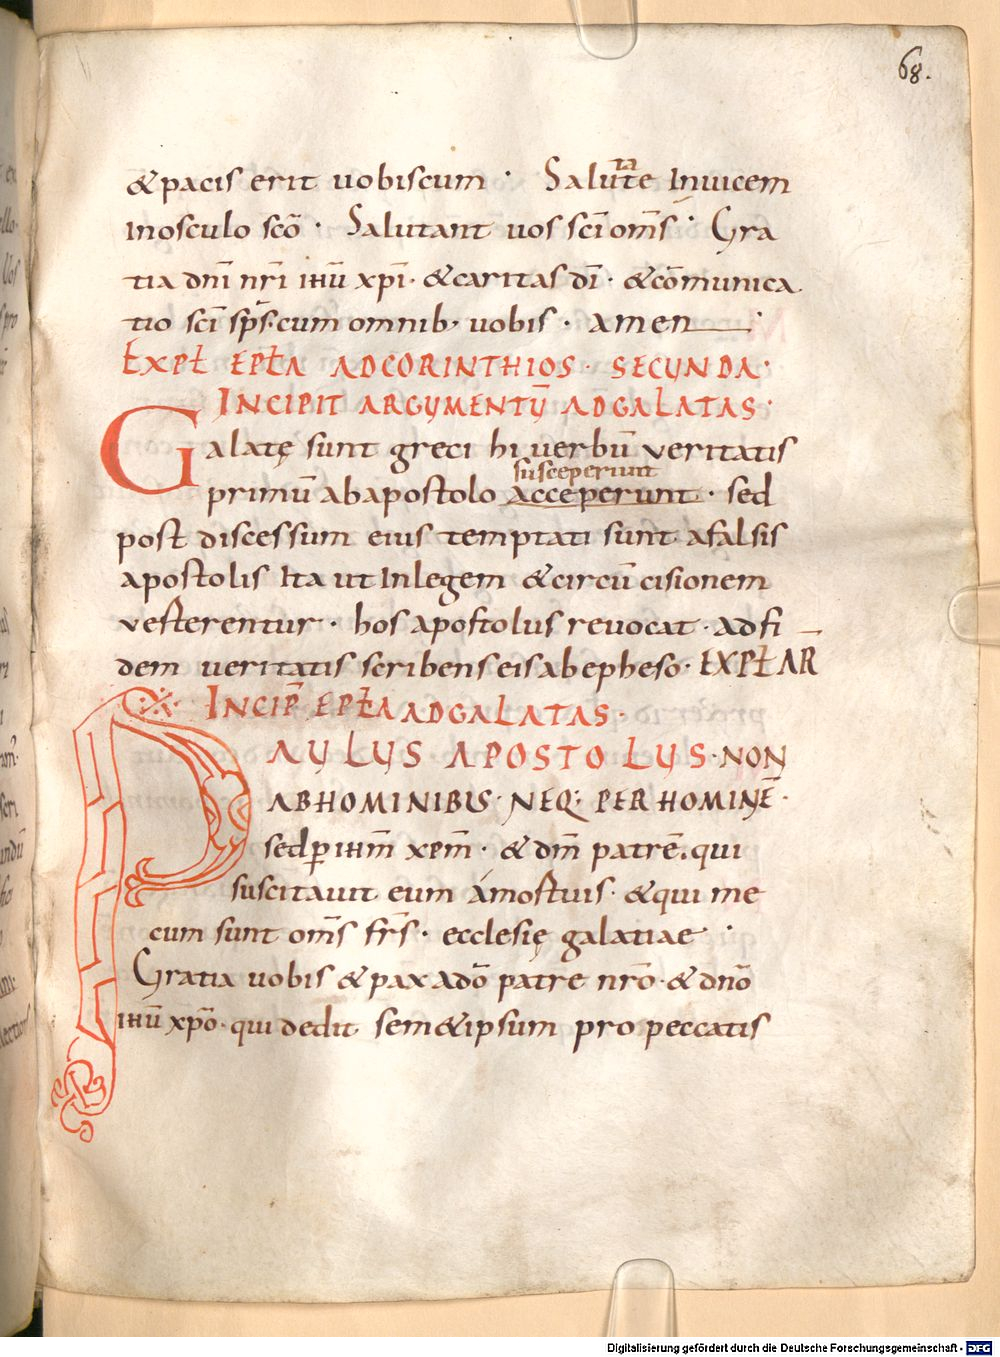 68.
&pacis erit uobiscum · Salutate Inuicem
Inosculo scō · Salutant uos scī om̄s · Gra
tia dn̄i nr̄i ihū xpī · &caritas dī · &cōmunica
tio scī sps̄ · cum omnib; uobis · amen
EXPŁ EPŁA ADCORINTHIOS · SECUNDA ·
INCIPIT ARGUMENTŪ ADGALATAS ·
Galatę sunt greci hi uerbū ueritatis
susceperiunt
primū abapostolo acceperunt · sed
post discessum eius temptati sunt afalsis
apostolis Ita ut Inlegem &circū cisionem
uesterentur · hos apostolus reuocat · adfi
dem ueritatis scribens eis abepheso · EXPŁ AR̄
INCIP̄ EPŁA ADGALATAS ·
PAULUS APOSTOLUS · NON
ABHOMINIBUS · NEQ; PER HOMINĒ ·
sed ꝑ ihm̄ xpm̄ · & dm̄ patrē · qui
suscitauit eum ámostuis · &qui me
cum sunt om̄s frs̄ · ecclesię galatiae ·
Gratia uobis & pax adō patre nr̄o · & dn̄o
ihū xp̄o · qui dedit sem&ipsum pro peccatis
Digitalisierung gefördert durch die Deutsche Forschungsgemeinschaft - DFG